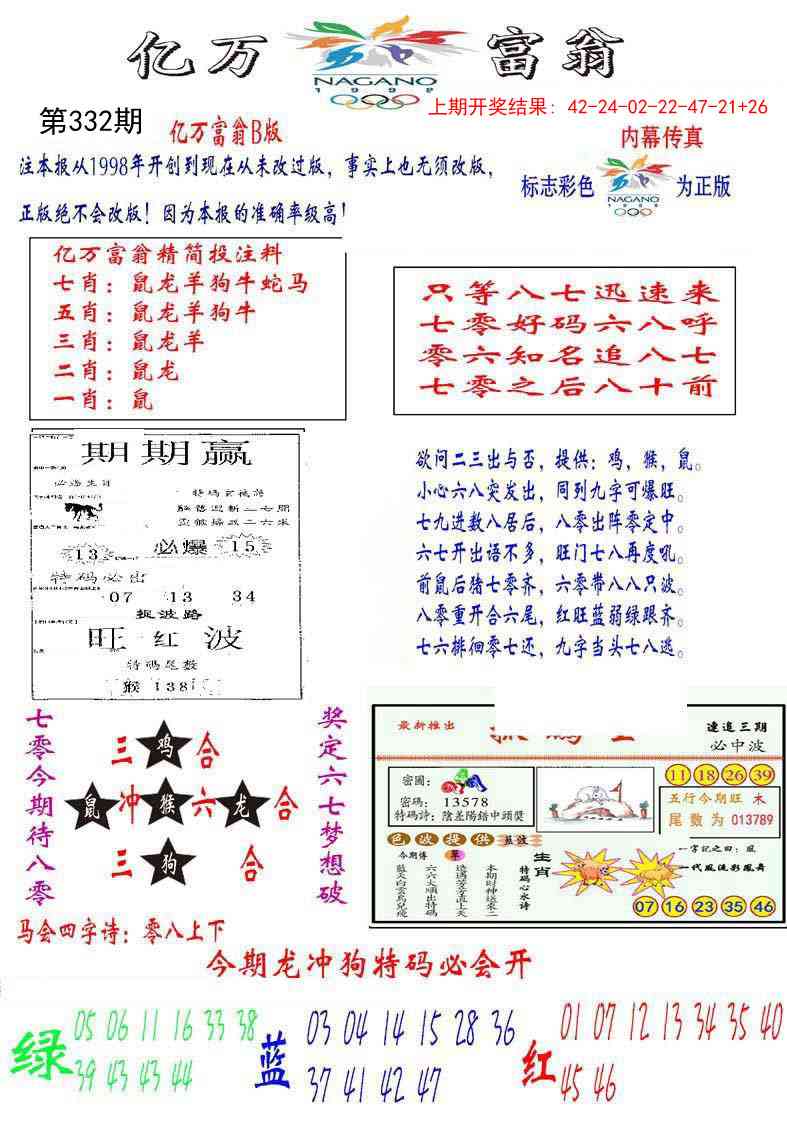 亿万富翁
NAGANO
1998
第332期
亿万富翁B版
上期开奖结果: 42-24-02-22-47-21+26
内幕传真
注本报从1998年开创到现在从未改过版，事实上也无须改版，
正版绝不会改版！因为本报的准确率级高！
标志彩色
NAGANO
1998
为正版
亿万富翁精简投注料
七肖：鼠龙羊狗牛蛇马
五肖：鼠龙羊狗牛
三肖：鼠龙羊
二肖：鼠龙
一肖：鼠
只等八七迅速来
七零好码六八呼
零六知名追八七
七零之后八十前
期期赢
必爆
13
15
特码必出
07 13 34
捉波路
旺红波
特码尾数
猴 138
欲问二三出与否，提供：鸡，猴，鼠。
小心六八突发出，同到九字可爆旺。
七九进数八居后，八零出阵零定中。
六七开出语不多，旺门七八再度吼。
前鼠后猪七零齐，六零带八八只波。
八零重开合六尾，红旺蓝弱绿跟齐。
七六排徊零七还，九字当头七八逃。
七零今期待八零
三鸡合
鼠冲猴六龙合
三狗合
奖定六七梦想破
最新推出
速追三期
必中波
密圖：
密碼：13578
特碼詩：陰差陽錯中頭獎
11 18 26 39
五行今期旺 木
尾数为 013789
色波提供
今期博
單
蓝天白雲鳥兒飛
六六大順出特碼
本期财神送來二
生肖
特码心水诗
一字記之曰：風
一代風流彩鳳舞
07 16 23 35 46
马会四字诗：零八上下
今期龙冲狗特码必会开
绿
05 06 11 16 33 38
39 43 43 44
蓝
03 04 14 15 28 36
37 41 42 47
红
01 07 12 13 34 35 40
45 46